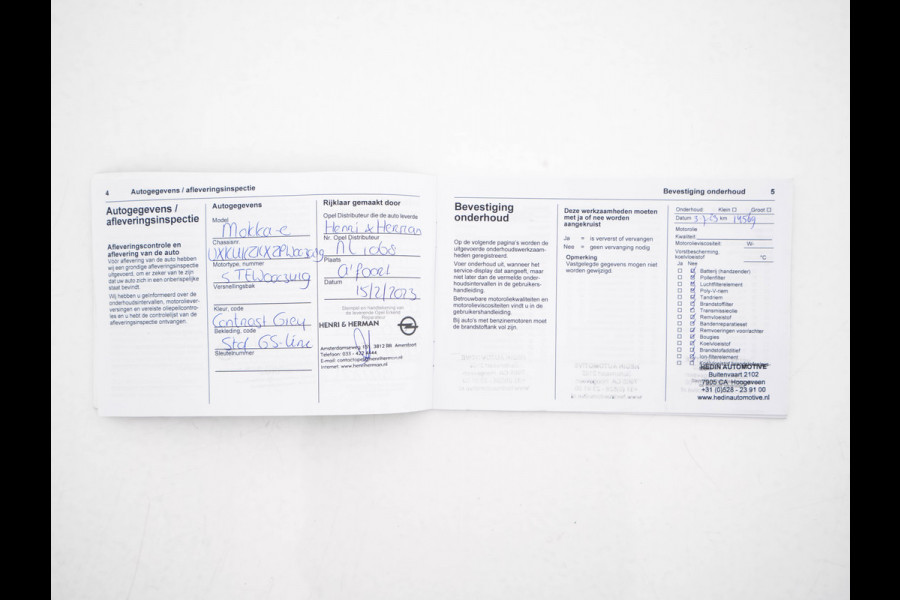 4 Autogegevens / afleveringsinspectie
Autogegevens /
afleveringsinspectie
Afleveringscontrole en
aflevering van de auto
Vóór aflevering van de auto hebben
wij een grondige afleveringsinspectie
uitgevoerd, om er zeker van te zijn
dat uw auto zich in een onberispelijke
staat bevindt.
Wij hebben u geïnformeerd over de
onderhoudsintervallen, motorolever-
versingen en vereiste oliepeilcontro-
les en u hebt de controlelijst van de
afleveringsinspectie ontvangen.
Autogegevens
Model
Mokka-e
Chassisnr.
Motortype, nummer
Versnellingsbak
Kleur, code
Contrast Grey
Bekleding, code
Stof GS-line
Sleutelnummer
Rijklaar gemaakt door
Opel Distributeur die de auto leverde
Henri & Herman
Nr. Opel Distributeur
Plaats
A'foort
Datum
15/2/2023
Stempel en handtekening van
de leverende Opel Erkend
Reparateur
HENRI & HERMAN
Amersfoort
Internet: www.henriherman.nl
Bevestiging onderhoud 5
Bevestiging
onderhoud
Op de volgende pagina's worden de
uitgevoerde onderhoudswerkzaam-
heden geregistreerd.
Voer onderhoud uit, wanneer het
service-display dat aangeeft, maar
niet later dan de vermelde onder-
houdsintervallen in de gebruikers-
handleiding.
Betrouwbare motoroliekwaliteiten en
motorolieviscositeiten vindt u in de
gebruikershandleiding.
Bij auto's met benzinemotoren moet
de brandstoftank vol zijn.
Deze werkzaamheden moeten
met ja of nee worden
aangekruist
Ja = is ververst of vervangen
Nee = geen vervanging nodig
Opmerking
Vastgelegde gegevens mogen niet
worden gewijzigd.
Onderhoud: Klein Groot
Datum km
Motorolie
Kwaliteit:
Motorolieviscositeit: W-
Vorstbescherming,
koelvloeistof °C
Ja Nee
Batterij (handzender)
Pollenfilter
Luchtfilterelement
Poly-V-riem
Tandriem
Brandstoffilter
Transmissieolie
Remvloeistof
Bandenreparatieset
Remvoeringen voor/achter
Bougies
Koelvloeistof
Brandstofadditief
Ion-filterelement
HEDIN AUTOMOTIVE
Buitenvaart 2102
7905 CA Hoogeveen
+31 (0)528 - 23 91 00
www.hedinautomotive.nl